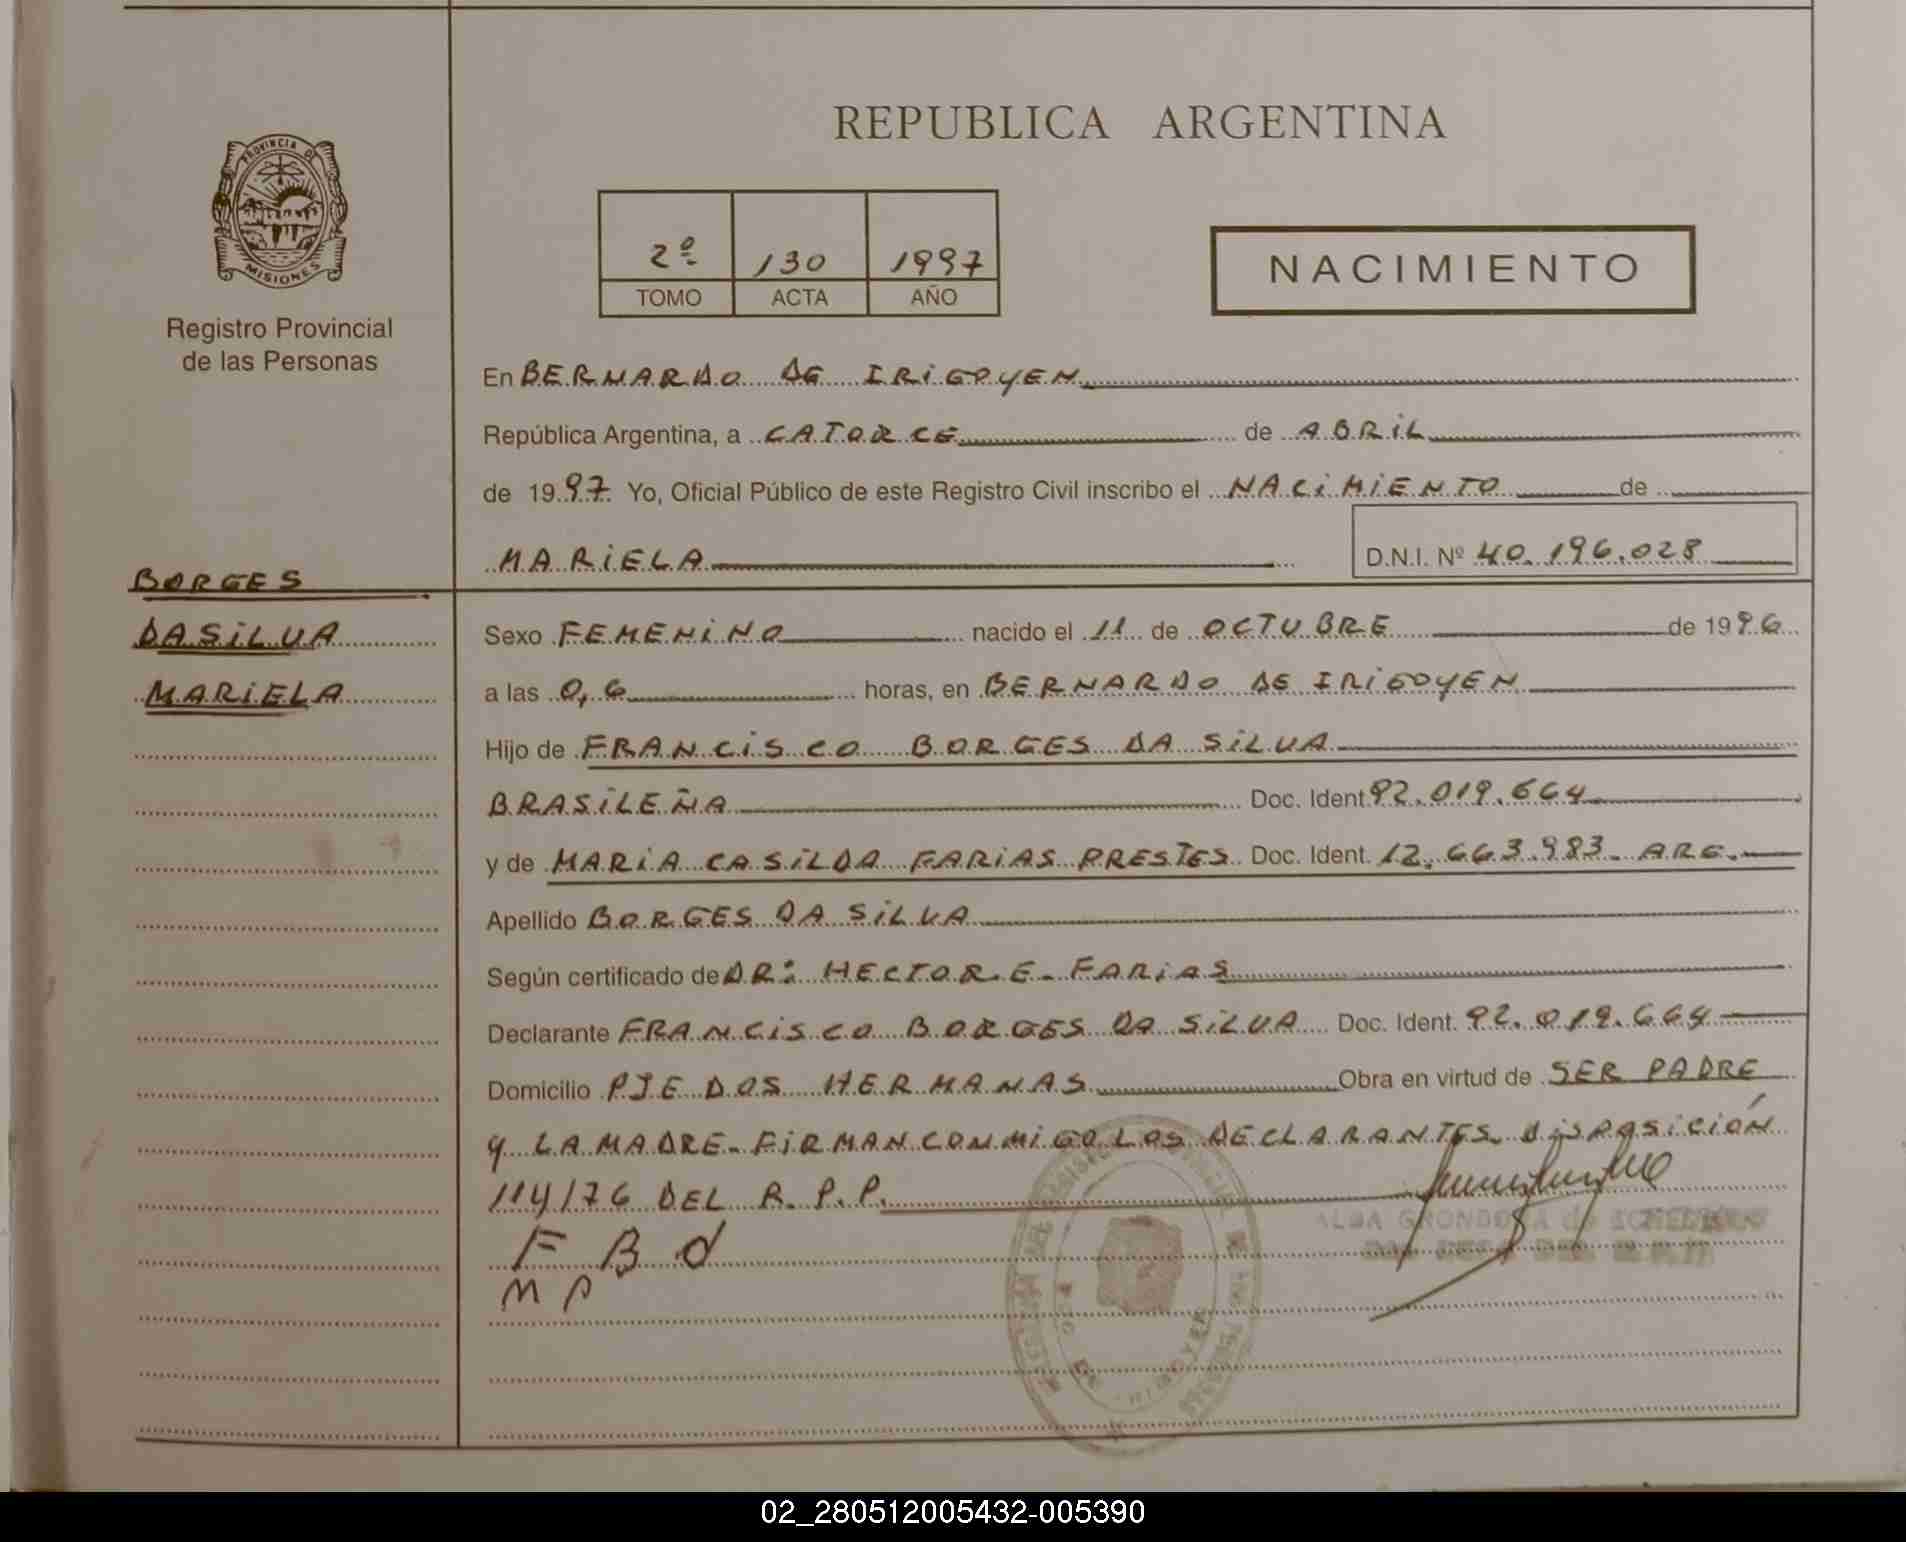 REPUBLICA ARGENTINA
PROVINCIA DE
MISIONES
Registro Provincial
de las Personas
2º 130 1997
TOMO ACTA AÑO
NACIMIENTO
En BERNARDO DE IRIGOYEN
República Argentina, a CATORCE de ABRIL
de 1997. Yo, Oficial Público de este Registro Civil inscribo el NACIMIENTO de
MARIELA D.N.I. Nº 40.196.028
BORGES
DASILVA
MARIELA
Sexo FEMENINO nacido el 11 de OCTUBRE de 1996
a las 0,6 horas, en BERNARDO DE IRIGOYEN
Hijo de FRANCISCO BORGES DA SILVA
BRASILEÑA Doc. Ident 92.019.664
y de MARIA CASILDA FARIAS PRESTES Doc. Ident. 12.663.983. ARG.
Apellido BORGES DA SILVA
Según certificado de DR: HECTOR E. FARIAS
Declarante FRANCISCO BORGES DA SILVA Doc. Ident. 92.019.664
Domicilio PJE DOS HERMANAS Obra en virtud de SER PADRE
Y LA MADRE. FIRMAN CONMIGO LOS DECLARANTES. DISPOSICIÓN
114/76 DEL R.P.P.
ALBA GRONDONA de
F B d
M P
02_280512005432-005390